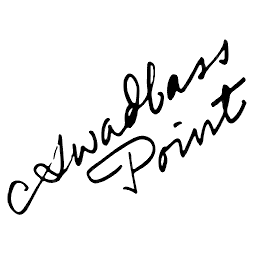 Swadlass
Point